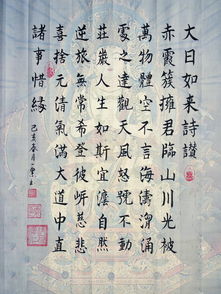 大日如来詩讃
赤霞簇擁君臨山川光被
萬物體空不言海濤洶涌
靈之達觀天風怒號不動
莊嚴人生如斯宜濠自然
逆旅無常希登彼岸慈悲
喜捨元倩氣滿大道中直
諸事惜緣